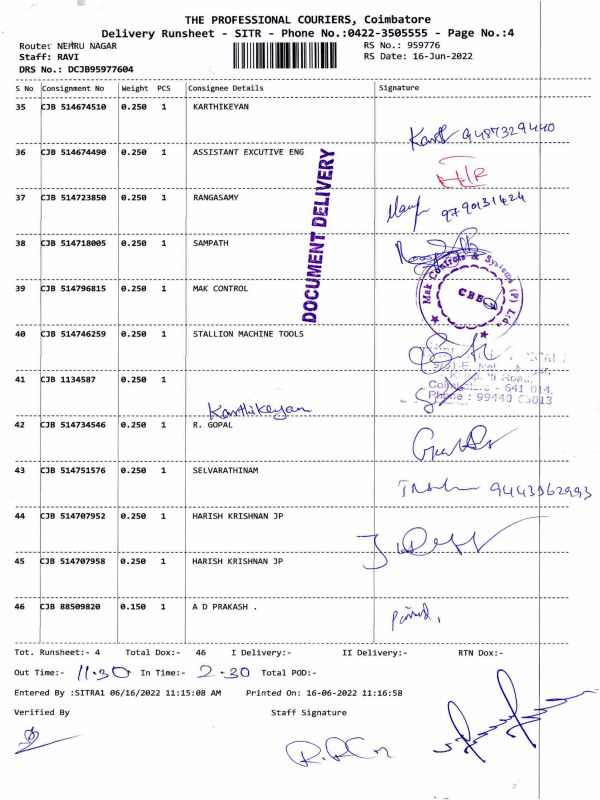 THE PROFESSIONAL COURIERS, Coimbatore
Delivery Runsheet - SITR - Phone No.:0422-3505555 - Page No.:4
Route: NEHRU NAGAR RS No.: 959776
Staff: RAVI RS Date: 16-Jun-2022
DRS No.: DCJB95977604
S No Consignment No Weight PCS Consignee Details Signature
35 CJB 514674510 0.250 1 KARTHIKEYAN
9487329440
36 CJB 514674490 0.250 1 ASSISTANT EXCUTIVE ENG
DOCUMENT DELIVERY
37 CJB 514723850 0.250 1 RANGASAMY
9790131424
38 CJB 514718005 0.250 1 SAMPATH
Mak Controls & Systems (P) Ltd.
CBE
39 CJB 514796815 0.250 1 MAK CONTROL
40 CJB 514746259 0.250 1 STALLION MACHINE TOOLS
41 CJB 1134587 0.250 1
Road,
641 014.
Phone : 99440
Karthikeyan
42 CJB 514734546 0.250 1 R. GOPAL
43 CJB 514751576 0.250 1 SELVARATHINAM
9443962993
44 CJB 514707952 0.250 1 HARISH KRISHNAN JP
45 CJB 514707958 0.250 1 HARISH KRISHNAN JP
46 CJB 88509820 0.150 1 A D PRAKASH .
Tot. Runsheet:- 4 Total Dox:- 46 I Delivery:- II Delivery:- RTN Dox:-
Out Time:- 11.30 In Time:- 2.30 Total POD:-
Entered By :SITRA1 06/16/2022 11:15:08 AM Printed On: 16-06-2022 11:16:58
Verified By Staff Signature